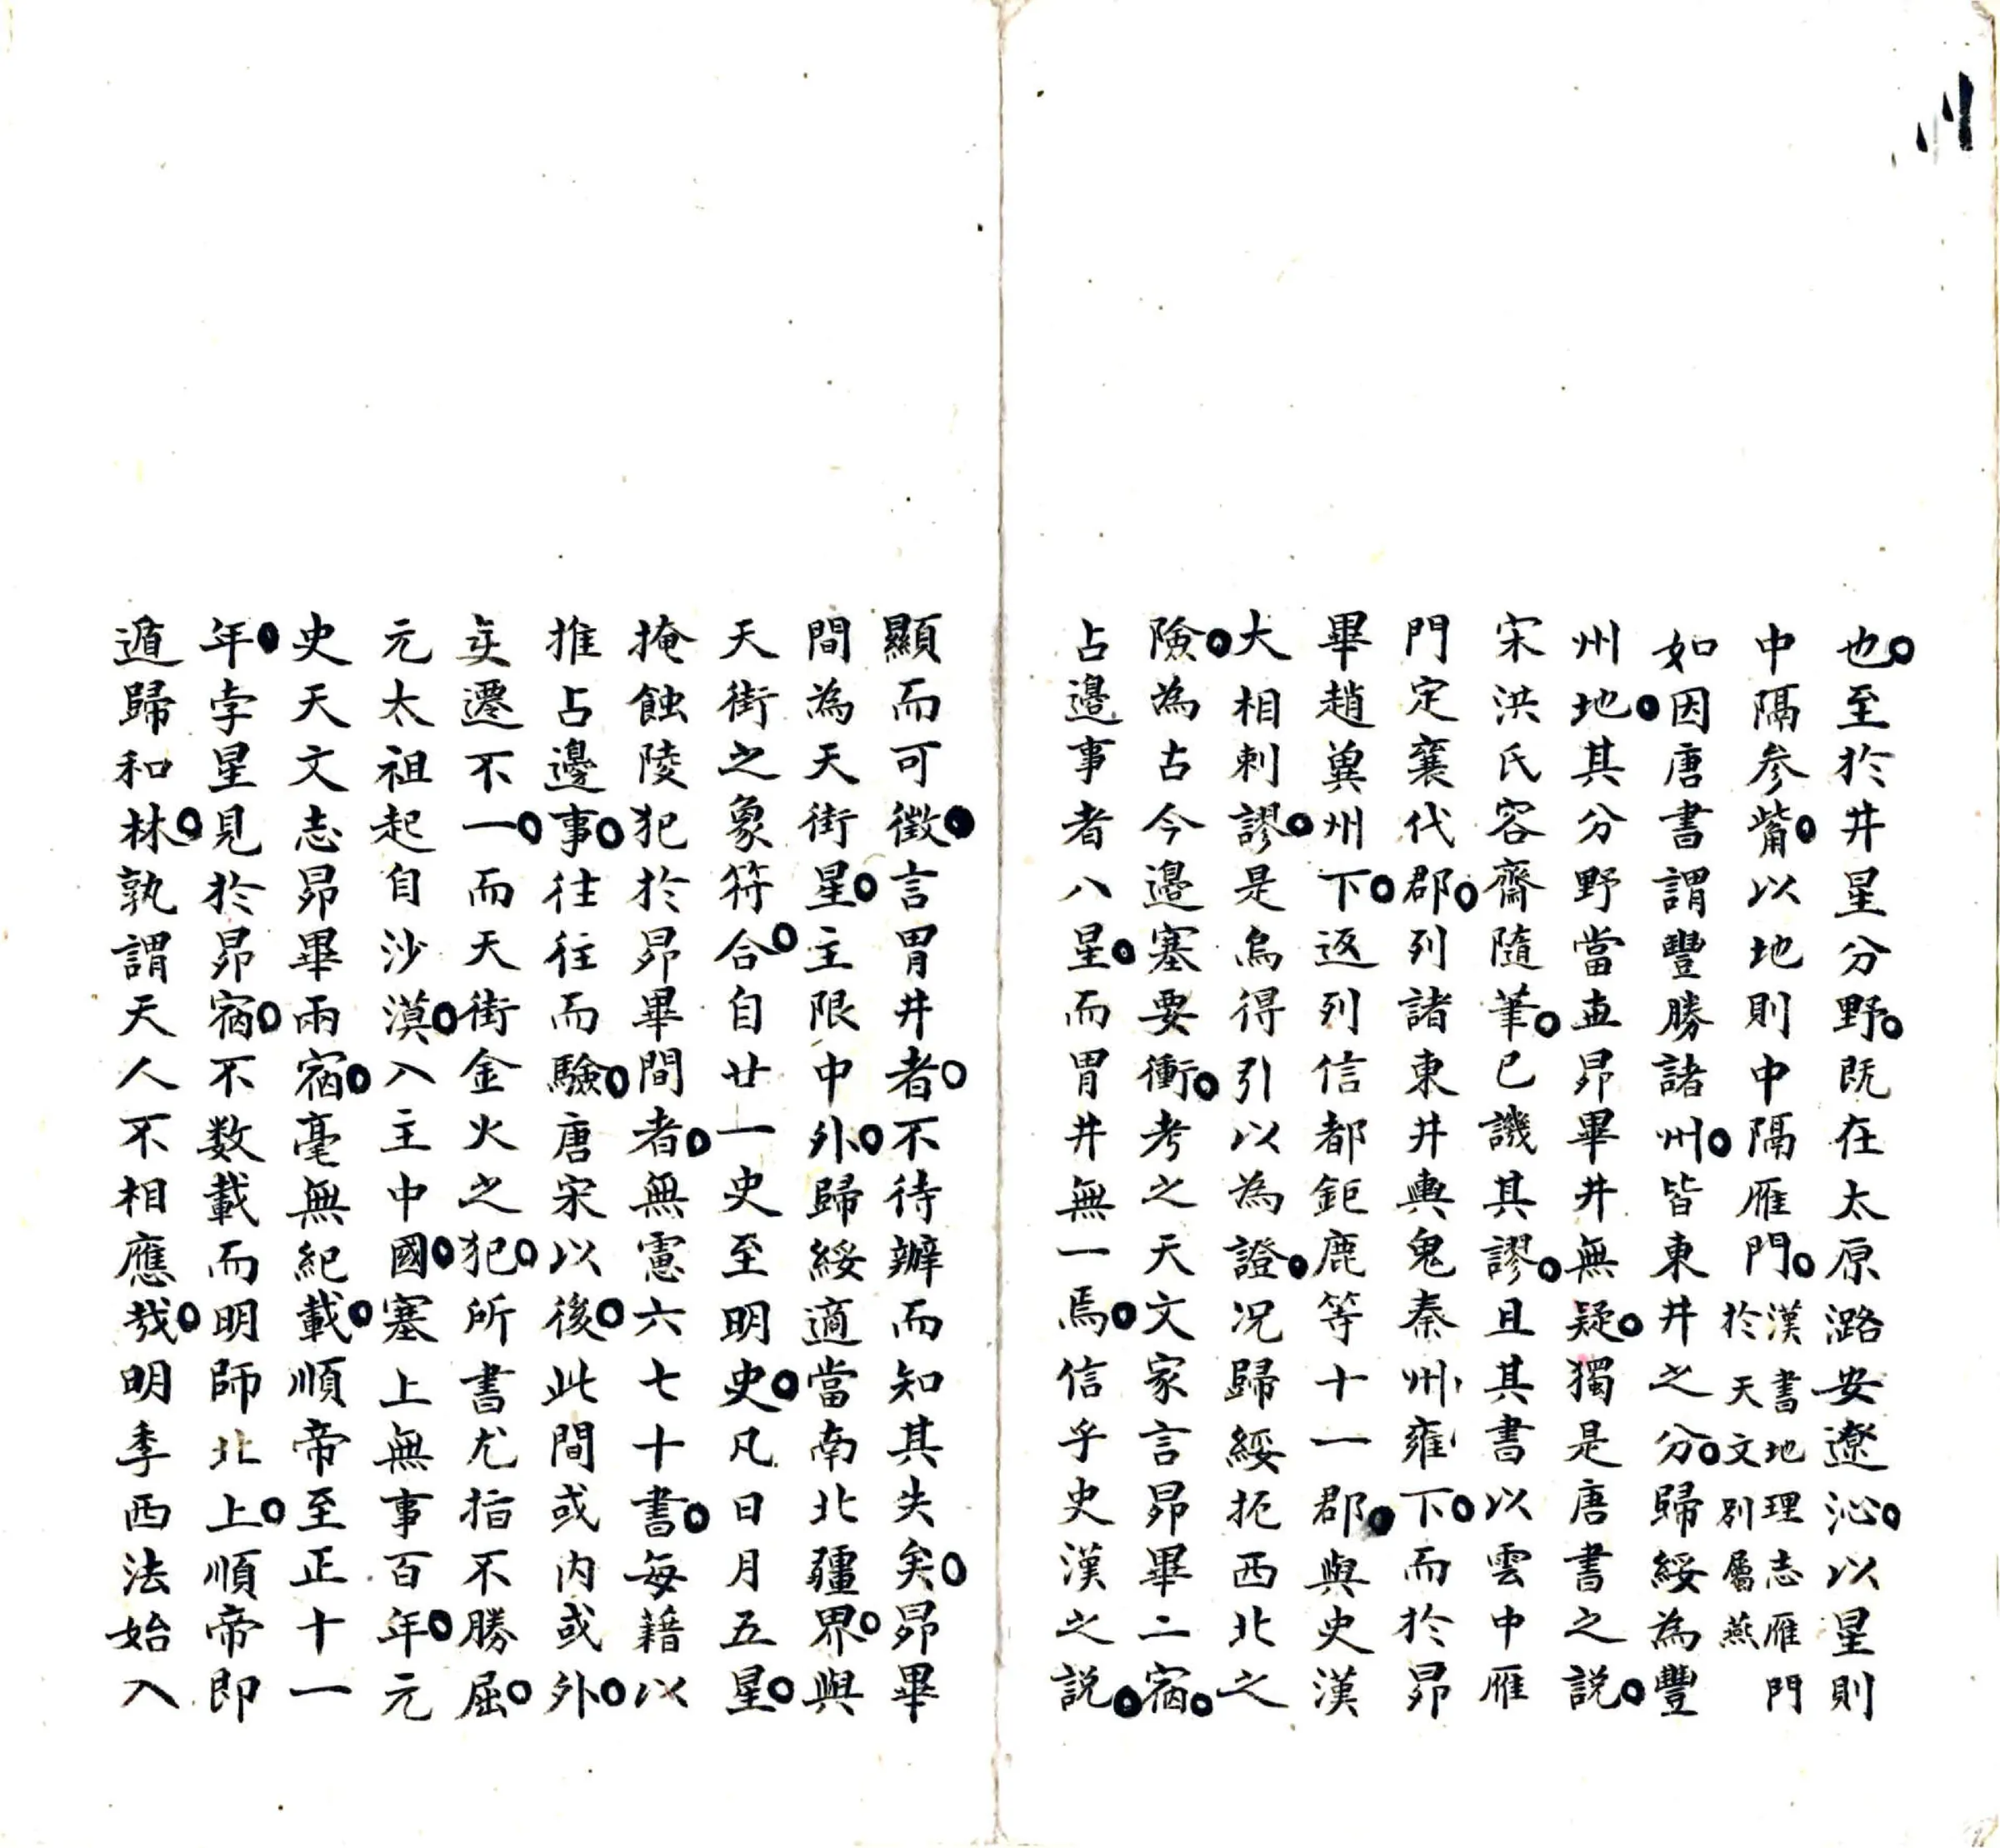 也。至於井星分野。既在太原潞安遼沁。以星則
中隔参觜。以地則中隔雁門。漢書地理志雁門於天文别屬燕
如因唐書謂豐勝諸州。皆東井之分。歸綏為豐
州地。其分野當直昴畢井無疑。獨是唐書之説。
宋洪氏容齋隨筆。已譏其謬。且其書以雲中雁
門定襄代郡。列諸東井輿鬼秦州雍下。而於昴
畢趙冀州下。返列信都鉅鹿等十一郡。與史漢
大相刺謬。是烏得引以為證。况歸綏扼西北之
險。為古今邊塞要衝。考之天文家言昴畢二宿。
占邊事者八星。而胃井無一焉。信乎史漢之説。
顯而可徵。言胃井者。不待辦而知其失矣。昴畢
間為天街星。主限中外。歸綏適當南北疆界。與
天街之象符合。自廿一史至明史。凡日月五星。
掩蝕陵犯於昴畢間者。無慮六七十書。每藉以
推占邊事。往往而驗。唐宋以後。此間或内或外。
変遷不一。而天街金火之犯。所書尤指不勝屈。
元太祖起自沙漠。入主中國。塞上無事百年。元
史天文志昴畢兩宿。毫無紀載。順帝至正十一
年。孛星見於昴宿。不数載而明師北上。順帝即
遁歸和林。孰謂天人不相應哉。明季西法始入